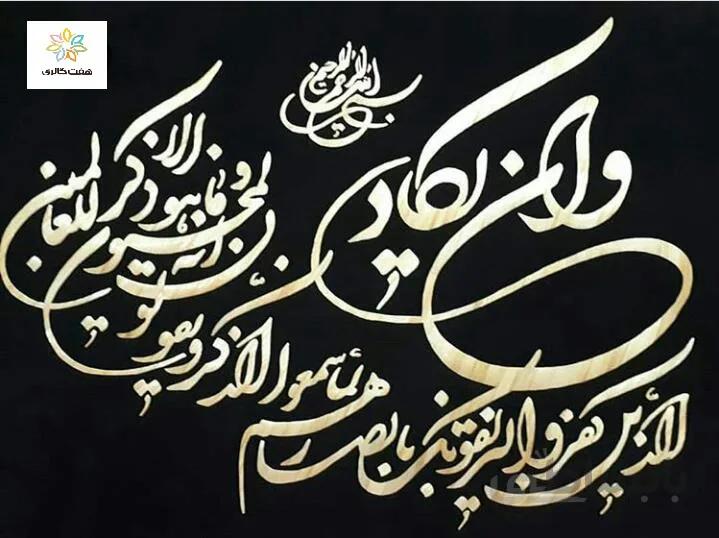 هفت گالری
بسم الله الرحمن الرحیم
وان یکاد
الذین کفروا لیزلقونک بابصارهم
لما سمعوا الذکر و یقولون
انه لمجنون
و ما هو الا ذکر
للعالمین